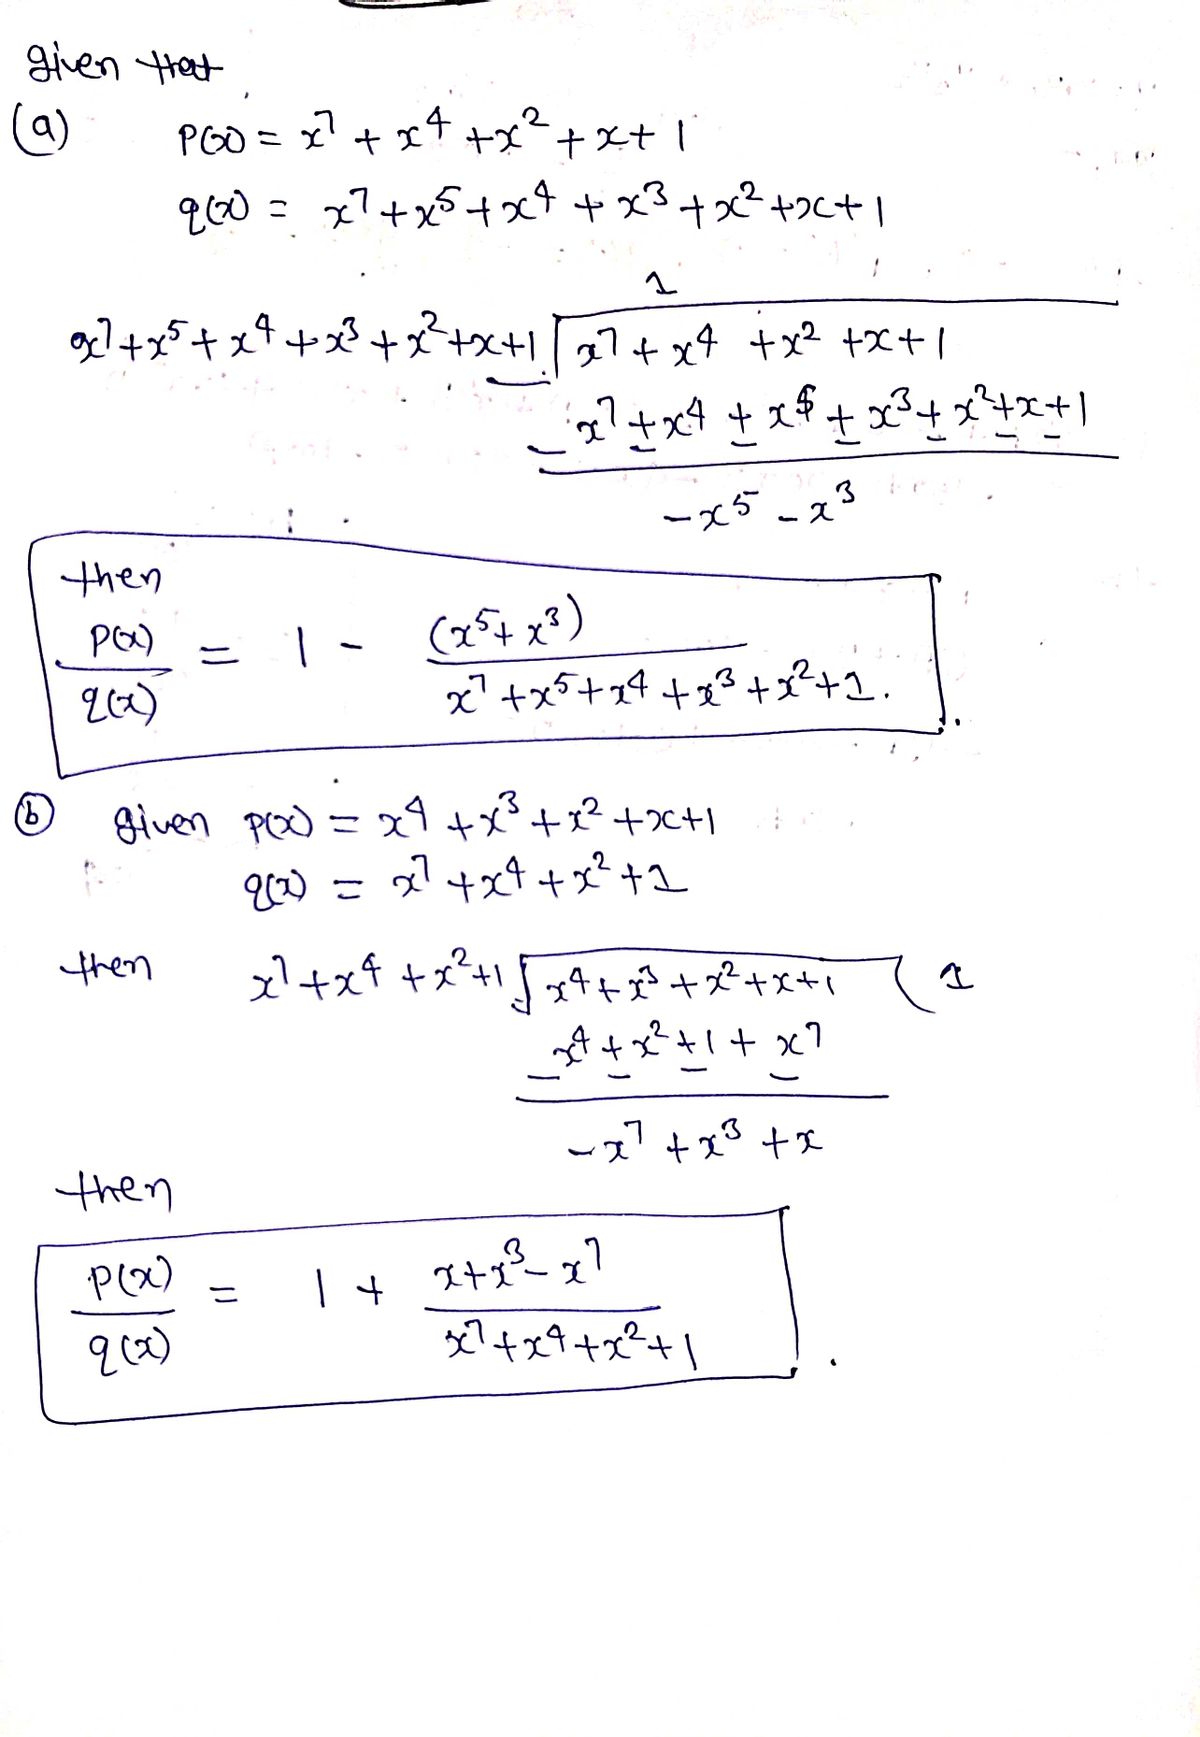 given that
(a) P(x) = x⁷ + x⁴ + x² + x + 1
q(x) = x⁷ + x⁵ + x⁴ + x³ + x² + x + 1
1
x⁷ + x⁵ + x⁴ + x³ + x² + x + 1 | x⁷ + x⁴ + x² + x + 1
x⁷ + x⁴ + x⁵ + x³ + x² + x + 1
− − − − − − −
-x⁵ - x³
then
P(x)/q(x) = 1 - (x⁵ + x³)/x⁷ + x⁵ + x⁴ + x³ + x² + 1.
(b) given p(x) = x⁴ + x³ + x² + x + 1
q(x) = x⁷ + x⁴ + x² + 1
then x⁷ + x⁴ + x² + 1 ) x⁴ + x³ + x² + x + 1 ( 1
x⁴ + x² + 1 + x⁷
− − − −
-x⁷ + x³ + x
then
P(x)/q(x) = 1 + x + x³ - x⁷/x⁷ + x⁴ + x² + 1.